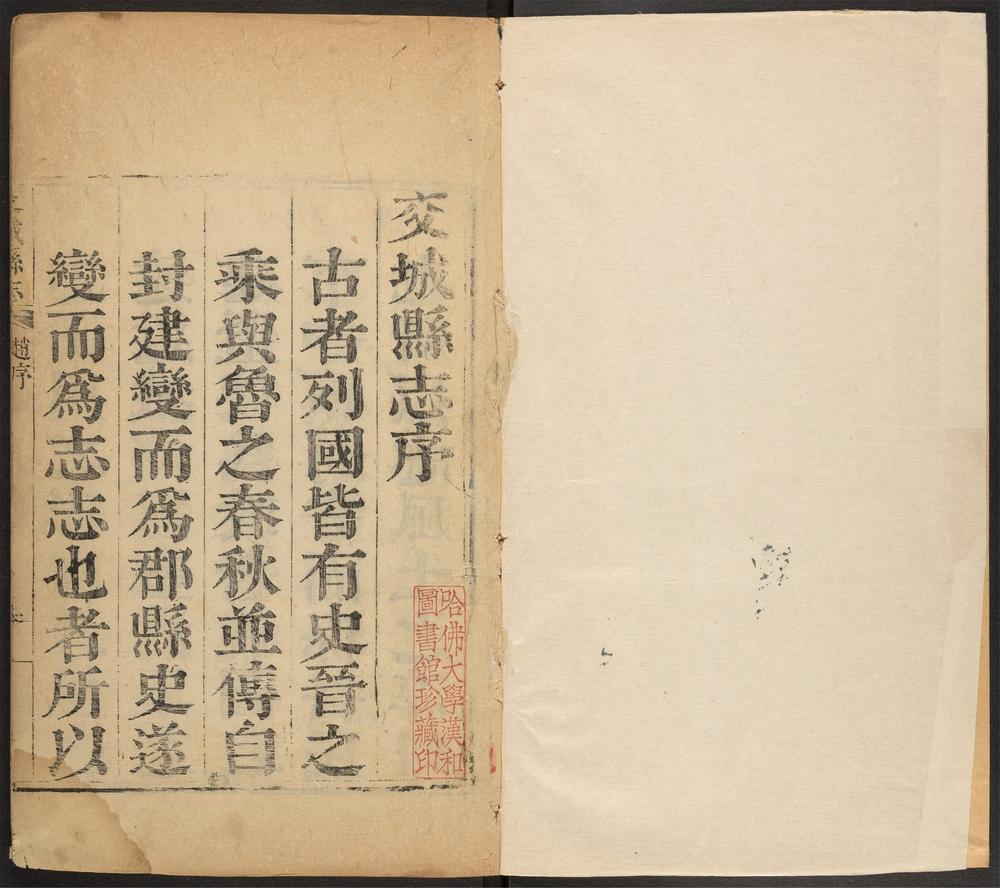 交城縣志序
古者列國皆有史晉之
乘與魯之春秋並傳自
封建變而爲郡縣史遂
變而爲志志也者所以
交城縣志
趙序
哈佛大學漢和
圖書館珍藏印